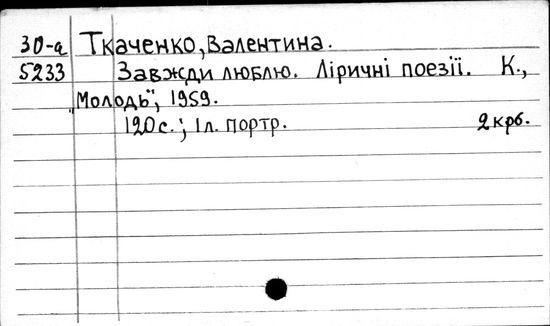 30-а Ткаченко, Валентина.
5233 Завжди люблю. Ліричні поезії. К.,
"Молодь", 1959.
120 с.; 1 л. портр. 2 крб.